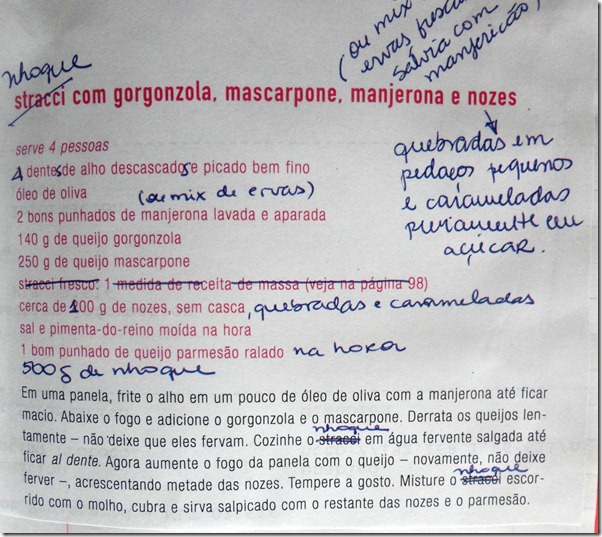 nhoque
(ou mix
ervas frescas
sálvia com
manjericão)
stracci com gorgonzola, mascarpone, manjerona e nozes
serve 4 pessoas
4 dentes de alho descascados e picado bem fino
óleo de oliva (ou mix de ervas)
2 bons punhados de manjerona lavada e aparada
140 g de queijo gorgonzola
250 g de queijo mascarpone
stracci fresco: 1 medida de receita de massa (veja na página 98)
cerca de 100 g de nozes, sem casca, quebradas e carameladas
sal e pimenta-do-reino moída na hora
1 bom punhado de queijo parmesão ralado na hora
500g de nhoque
quebradas em
pedaços pequenos
e carameladas
previamente em
açúcar.
Em uma panela, frite o alho em um pouco de óleo de oliva com a manjerona até ficar
macio. Abaixe o fogo e adicione o gorgonzola e o mascarpone. Derrata os queijos len-
tamente – não deixe que eles fervam. Cozinhe o stracci nhoque em água fervente salgada até
ficar al dente. Agora aumente o fogo da panela com o queijo – novamente, não deixe
ferver –, acrescentando metade das nozes. Tempere a gosto. Misture o stracci nhoque escor-
rido com o molho, cubra e sirva salpicado com o restante das nozes e o parmesão.